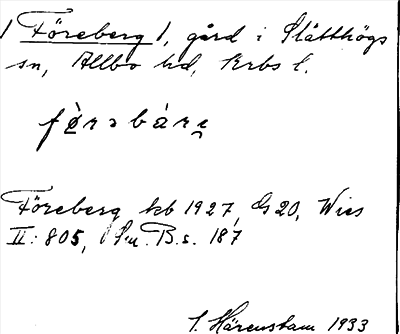 / Föreberg /, gård i Slätthögs
sn, Allbo hd, Krbs l.
Föreberg kb 1927, G 20, Wies
II: 805, Sm. B. s. 187
S. Härenstam 1933